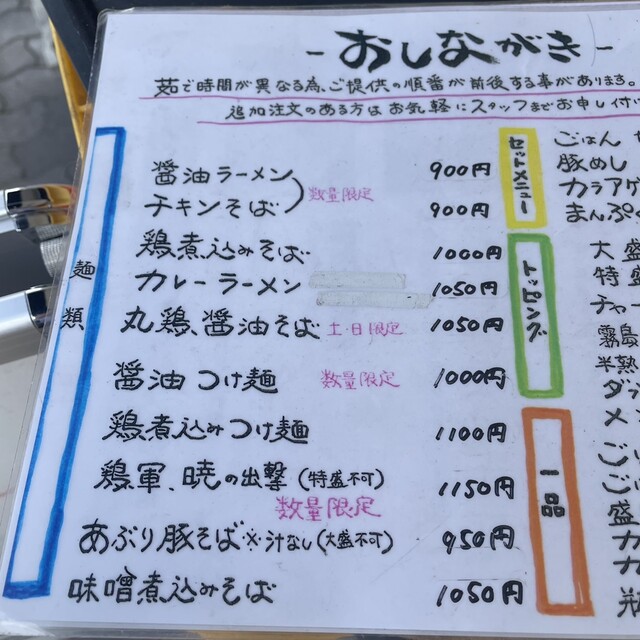 -おしながき-
茹で時間が異なる為、ご提供の順番が前後する事があります。
追加注文のある方はお気軽にスタッフまでお申し付
麺類
醤油ラーメン 900円
数量限定
チキンそば 900円
鶏煮込みそば 1000円
カレーラーメン 1050円
丸鶏、醤油そば 土・日限定 1050円
醤油つけ麺 数量限定 1000円
鶏煮込みつけ麺 1100円
鶏軍、暁の出撃(特盛不可) 1150円
数量限定
あぶり豚そば※汁なし(大盛不可) 950円
味噌煮込みそば 1050円
セットメニュー
ごはん
豚めし
カラアゲ
まんぷ
トッピング
大盛
特盛
チャー
霧島
半熟
ダ
メ
一品
ご
ご
盛
カ
カ
瓶